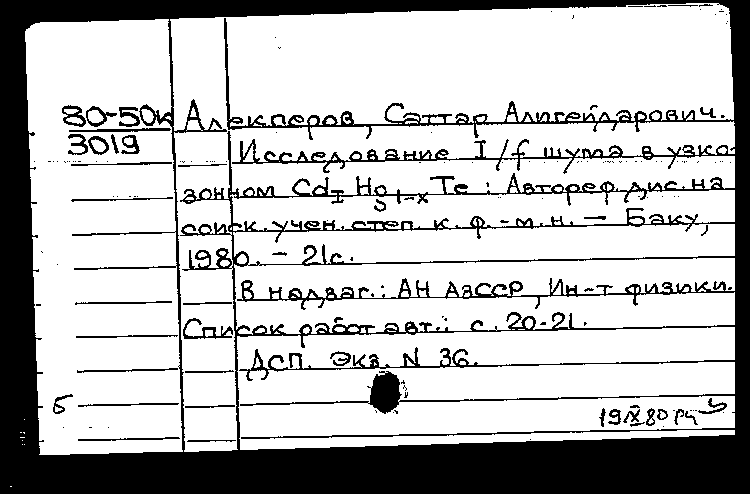 80-50к Алекперов, Саттар Алигейдарович.
3019
Исследование I/f шума в узко-
зонном CdI Hg 1-x Te : Автореф. дис. на
соиск. учен. степ. к. ф.-м. н. — Баку,
1980. - 21с.
В надзаг.: АН АзССР, Ин-т физики.
Список работ авт.: с. 20-21.
ДСП. Экз. N 36.
5
19 IX 80